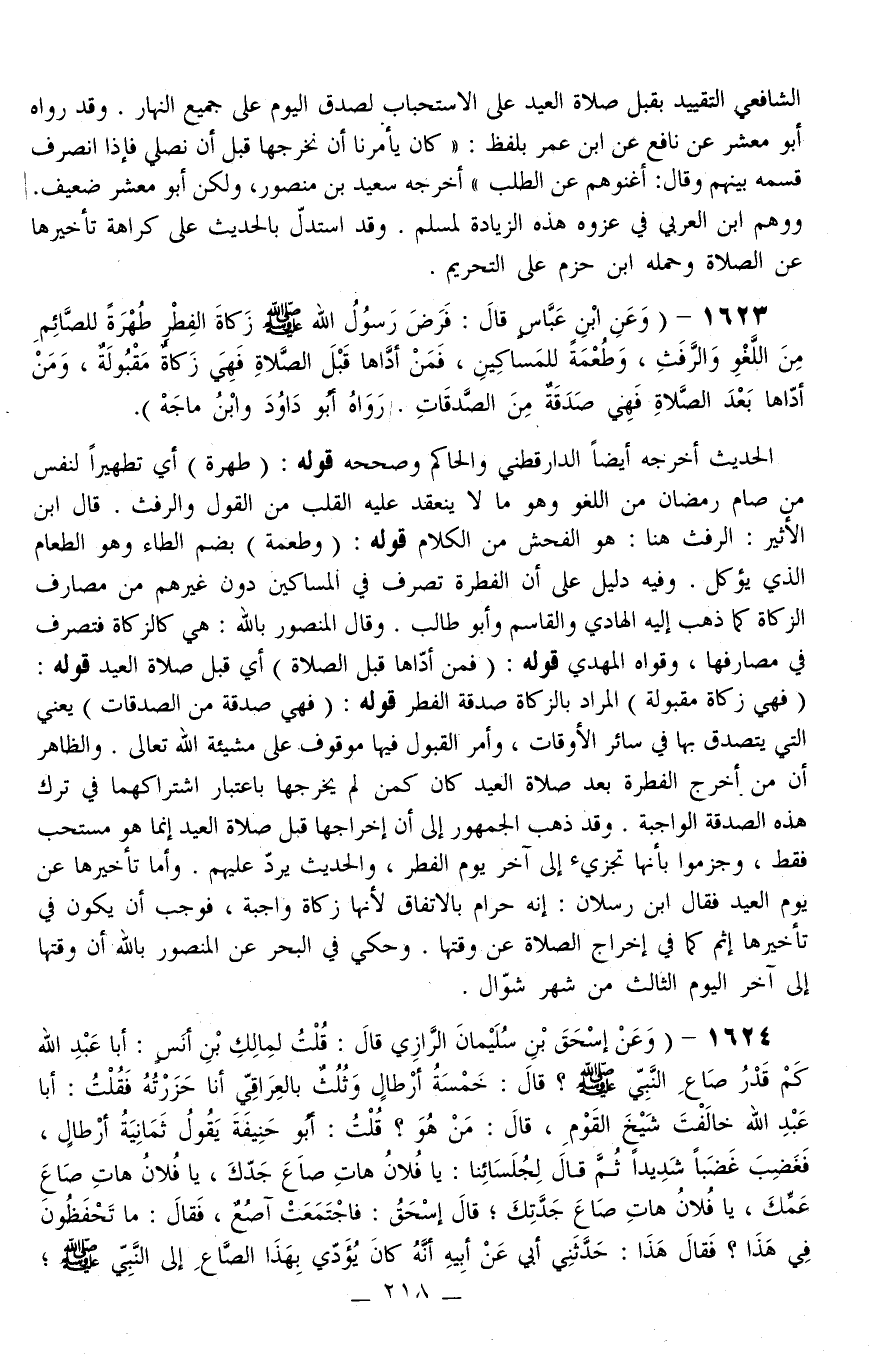 الشافعي التقييد بقبل صلاة العيد على الاستحباب لصدق اليوم على جميع النهار . وقد رواه
أبو معشر عن نافع عن ابن عمر بلفظ : « كان يأمرنا أن نخرجها قبل أن نصلي فإذا انصرف
قسمه بينهم وقال: أغنوهم عن الطلب » أخرجه سعيد بن منصور، ولكن أبو معشر ضعيف.
ووهم ابن العربي في عزوه هذه الزيادة لمسلم . وقد استدلّ بالحديث على كراهة تأخيرها
عن الصلاة وحمله ابن حزم على التحريم .
١٦٢٣ – ( وَعَنِ ابْنِ عَبَّاسٍ قالَ : فَرَضَ رَسولُ الله ﷺ زَكاةَ الفِطْرِ طُهْرَةً للصَّائِمِ
مِنَ اللَّغْوِ وَالرَّفَثِ ، وَطُعْمَةً للمَساكِينِ ، فَمَنْ أدَّاها قَبْلَ الصَّلاةِ فَهِيَ زَكاةٌ مَقْبُولَةٌ ، وَمَنْ
أدّاها بَعْدَ الصَّلاةِ فَهِي صَدَقَةٌ مِنَ الصَّدقَاتِ . رَوَاهُ أبُو دَاوُدَ وابْنُ ماجَهْ ).
الحديث أخرجه أيضاً الدارقطني والحاكم وصححه قوله : ( طهرة ) أي تطهيراً لنفس
من صام رمضان من اللغو وهو ما لا ينعقد عليه القلب من القول والرفث . قال ابن
الأثير : الرفث هنا : هو الفحش من الكلام قوله : ( وطعمة ) بضم الطاء وهو الطعام
الذي يؤكل . وفيه دليل على أن الفطرة تصرف في المساكين دون غيرهم من مصارف
الزكاة كما ذهب إليه الهادي والقاسم وأبو طالب . وقال المنصور بالله : هي كالزكاة فتصرف
في مصارفها ، وقواه المهدي قوله : ( فمن أدّاها قبل الصلاة ) أي قبل صلاة العيد قوله :
( فهي زكاة مقبولة ) المراد بالزكاة صدقة الفطر قوله : ( فهي صدقة من الصدقات ) يعني
التي يتصدق بها في سائر الأوقات ، وأمر القبول فيها موقوف على مشيئة الله تعالى . والظاهر
أن من أخرج الفطرة بعد صلاة العيد كان كمن لم يخرجها باعتبار اشتراكهما في ترك
هذه الصدقة الواجبة . وقد ذهب الجمهور إلى أن إخراجها قبل صلاة العيد إنما هو مستحب
فقط ، وجزموا بأنها تجزيء إلى آخر يوم الفطر ، والحديث يردّ عليهم . وأما تأخيرها عن
يوم العيد فقال ابن رسلان : إنه حرام بالاتفاق لأنها زكاة واجبة ، فوجب أن يكون في
تأخيرها إثم كما في إخراج الصلاة عن وقتها . وحكي في البحر عن المنصور بالله أن وقتها
إلى آخر اليوم الثالث من شهر شوّال .
١٦٢٤ – ( وَعَنْ إسْحَقَ بْنِ سُلَيْمانَ الرَّازِي قالَ : قُلْتُ لمِالِكِ بْنِ أنَسٍ : أبا عَبْدِ الله
كَمْ قَدْرُ صَاعِ النَّبِيِّ ﷺ ؟ قالَ : خَمْسَةُ أرْطالٍ وَثُلُثٌ بالعِرَاقِيِّ أنا حَزَرْتُهُ فَقُلْتُ : أبا
عَبْدِ الله خالَفْتَ شَيْخَ القَوْمِ ، قالَ : مَنْ هُوَ ؟ قُلْتُ : أبُو حَنِيفَةَ يَقُولُ ثَمَانِيَةُ أرْطالٍ ،
فَغَضِبَ غَضَباً شَدِيداً ثُمَّ قالَ لِجُلَسَائِنا : يا فُلانُ هاتِ صاَعَ جَدّكَ ، يا فُلانُ هاتِ صَاعَ
عَمِّكَ ، يا فُلانُ هاتِ صَاعَ جَدَّتِكَ ؛ قالَ إسْحَقُ : فاجْتَمَعَتْ آصُعٌ ، فَقالَ : ما تَحْفَظُونَ
فِي هَذَا ؟ فَقالَ هَذَا : حَدَّثَنِي أبي عَنْ أبِيهِ أنَّهُ كانَ يُؤَدّي بِهَذَا الصَّاعِ إلى النَّبِيّ ﷺ ؛
— ٢١٨ —